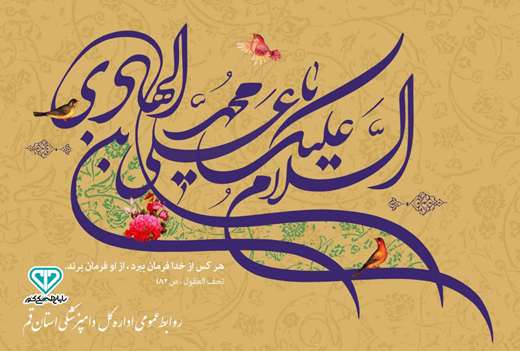 السلام علیک یا علی بن محمد الهادی
هر کس از خدا فرمان ببرد، از او فرمان برند.
تحف العقول، ص ۴۸۲
روابط عمومی اداره کل دامپزشکی استان قم